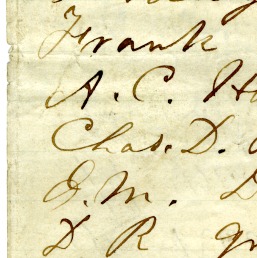 Frank
A. C. H
Chas. D.
G. M. D
D R gr